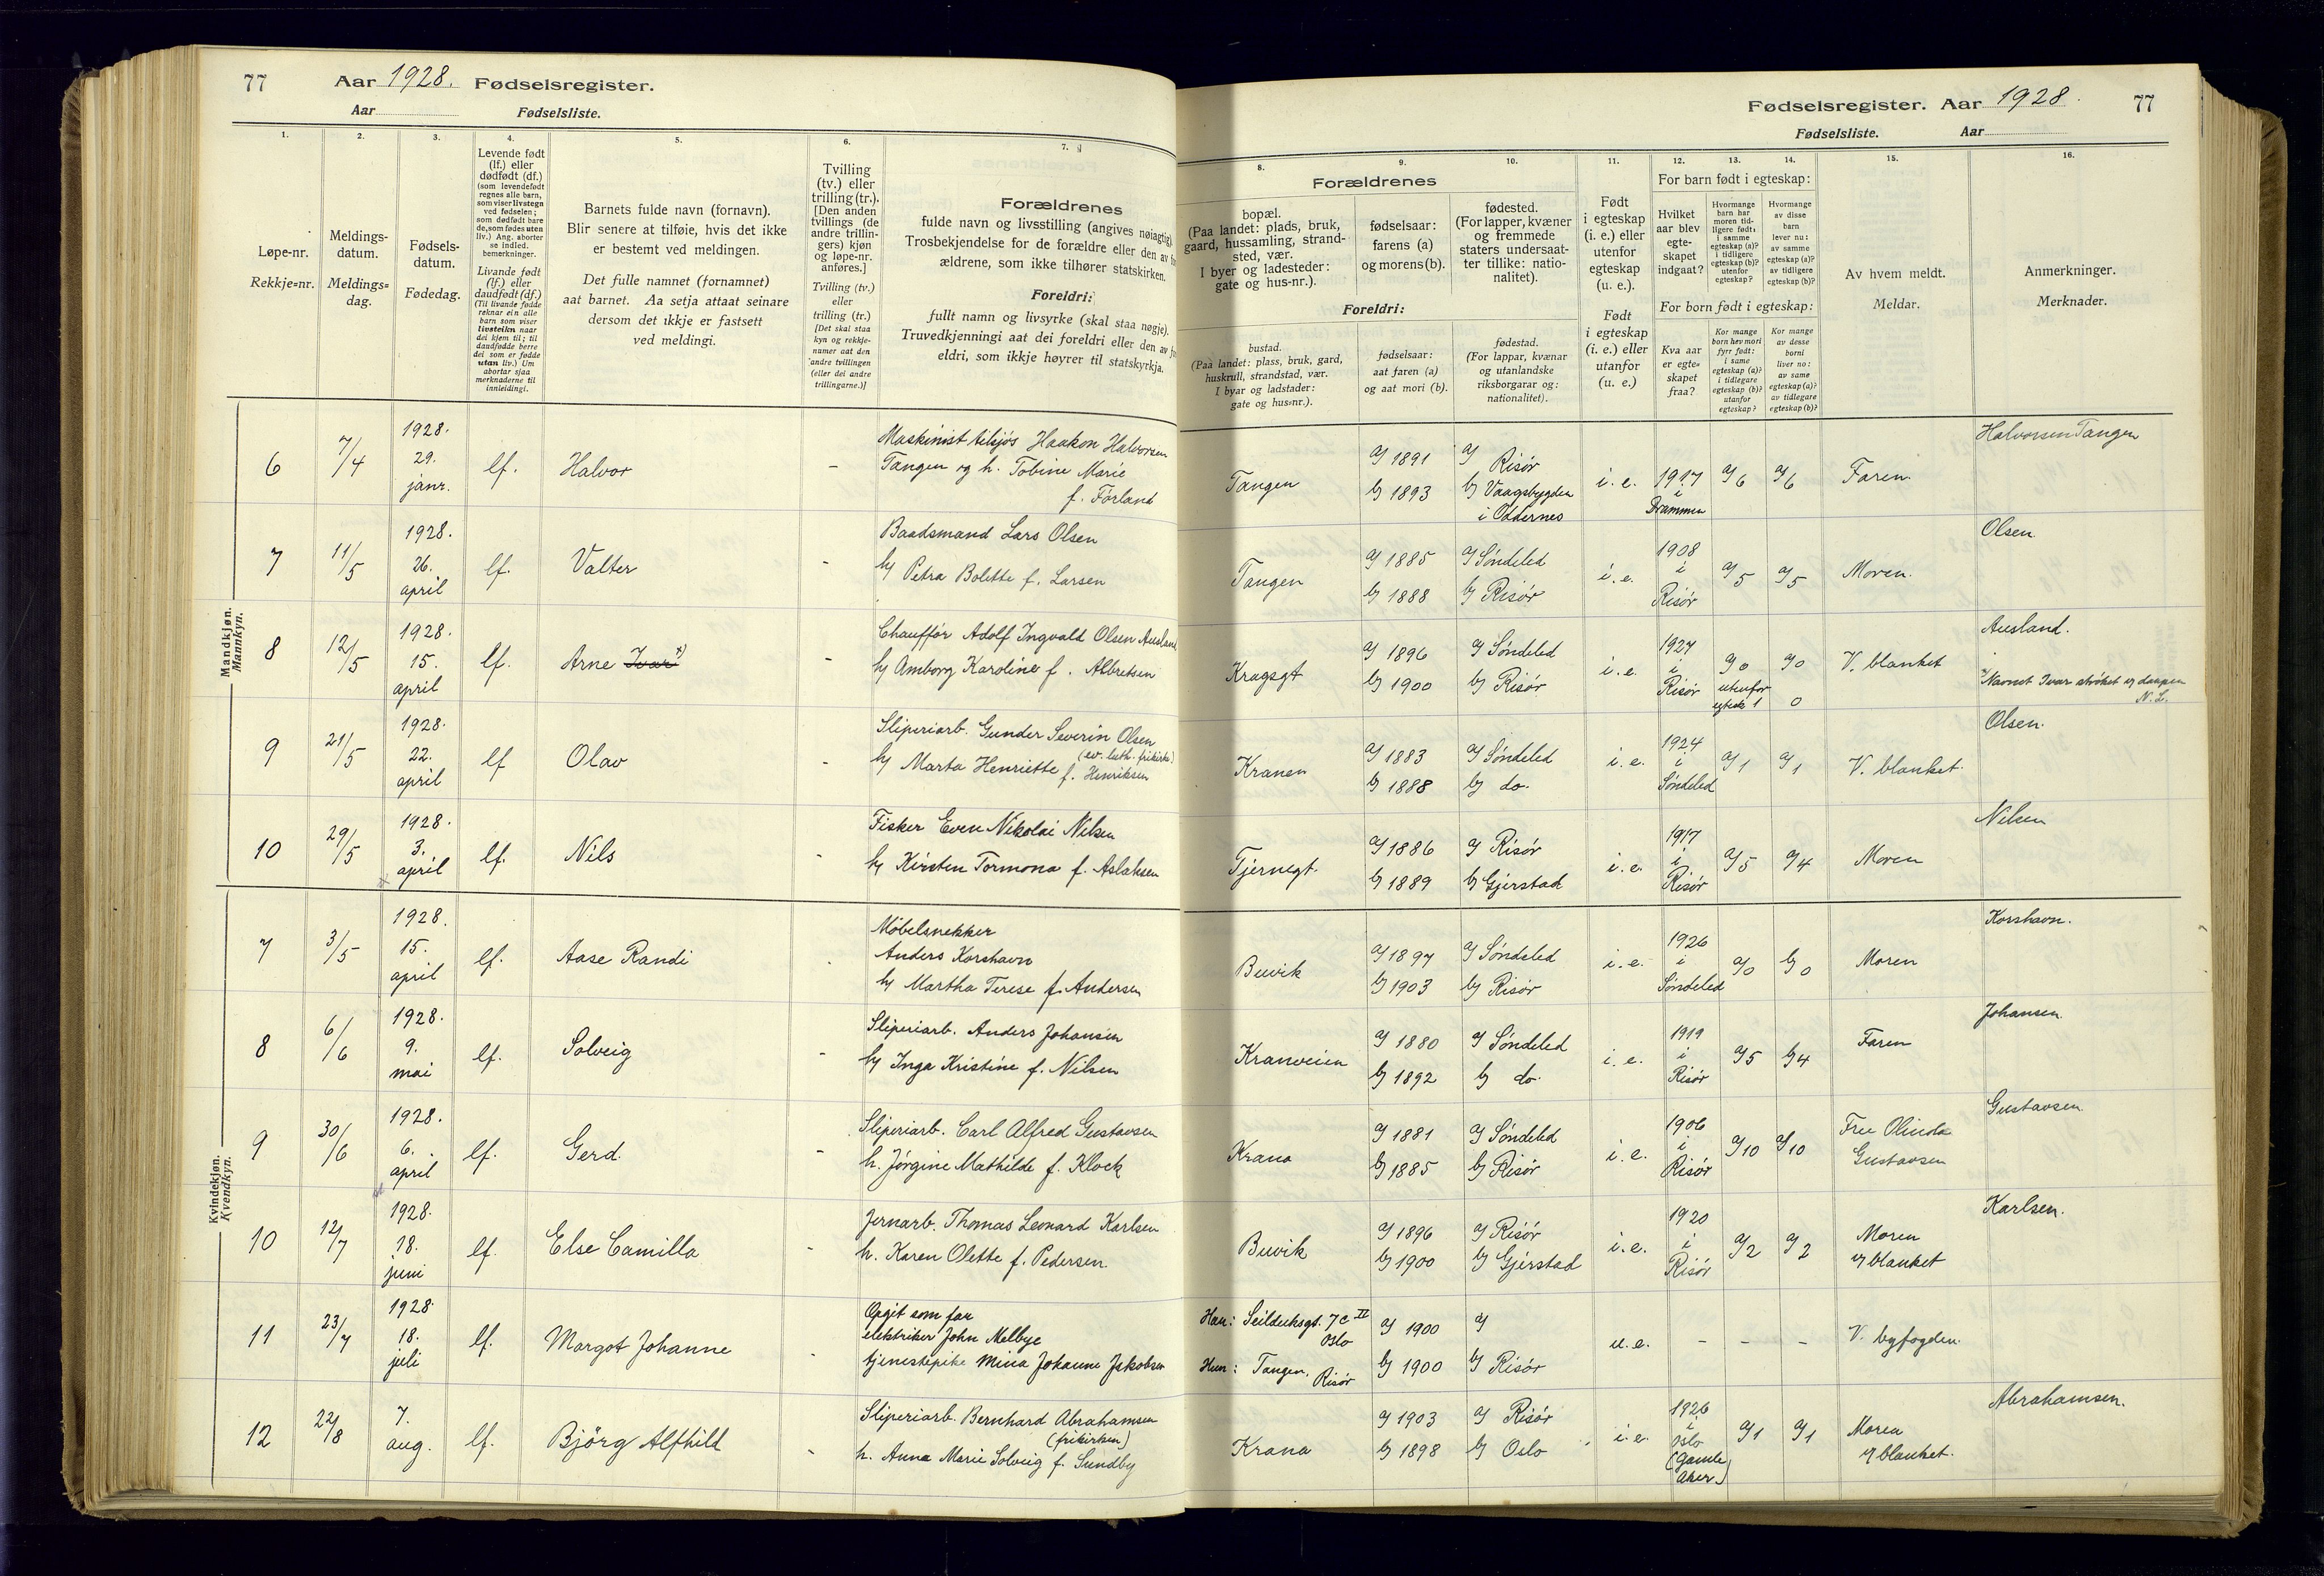 77 Aar 1928. Fødselsregister.
Aar Fødselsliste.
1. 2. 3. 4. 5. 6. 7.
Løpe-nr.
Rekkje=nr.
Meldings-
datum.
Meldings=
dag.
Fødsels-
datum.
Fødedag.
Levende født
(lf.) eller
dødfødt (df.)
(som levendefødt
regnes alle barn,
som viser livstegn
ved fødselen;
som dødfødt bare
de, som fødes uten
liv.) Ang. aborter
se indled.
bemerkninger.
Livande født
(lf.) eller
daudfødt (df.)
(Til livande fødde
reknar ein alle
barn som viser
livsteikn naar
dei kjem til; til
daudfødde berre
dei som er fødde
utan liv.) Um
abortar sjaa
merknaderne til
innleidingi.
Barnets fulde navn (fornavn).
Blir senere at tilføie, hvis det ikke
er bestemt ved meldingen.
Det fulle namnet (fornamnet)
aat barnet. Aa setja attaat seinare
dersom det ikkje er fastsett
ved meldingi.
Tvilling
(tv.) eller
trilling (tr.).
[Den anden
tvillings (de
andre trillin-
gers) kjøn
og løpe-nr.
anføres.]
Tvilling (tv.)
eller
trilling (tr.)
[Det skal staa
kyn og rekkje-
numer aat den
andre tvillingen
(eller dei andre
trillingarne.)]
Forældrenes
fulde navn og livsstilling (angives nøiagtig).
Trosbekjendelse for de forældre eller den av
ældrene, som ikke tilhører statskirken.
Foreldri:
fullt namn og livsyrke (skal staa nøgje).
Truvedkjenningi aat dei foreldri eller den av
eldri, som ikkje høyrer til statskyrkja.
Mandkjøn.
Mannkyn.
6 7/4 1928. 29. janr. lf. Halvor - Maskinist tilsjøs Haakon Halvorsen
Tangen og h. Tobine Marie
f. Førland
7 11/5 1928. 26. april lf. Valter - Baadsmand Lars Olsen
h/ Petra Bolette f. Larsen
8 12/5 1928. 15. april lf. Arne Ivar x) - Chauffør Adolf Ingvald Olsen Ausland
h/ Amborg Karoline f. Albretsen
9 21/5 1928. 22. april lf Olav - Sliperiarb. Gunder Severin Olsen
(ev. luth. frikirke)
h/ Marta Henriette f. Henriksen
10 29/5 1928. 3. april lf. Nils - Fisker Even Nikolai Nilsen
h/ Kirsten Tormona f. Aslaksen
Kvindekjøn.
Kvendkyn.
7 3/5 1928. 15. april lf. Aase Randi Møbelsnekker
Anders Korshavn
h/ Martha Terese f. Andersen
8 6/6 1928. 9. mai lf. Solveig - Sliperiarb. Anders Johansen
h/ Inga Kristine f. Nilsen
9 30/6 1928. 6. april lf. Gerd. - Sliperiarb. Carl Alfred Gustavsen
h. Jørgine Mathilde f. Klock
10 12/7 1928. 18. juni lf. Else Camilla - Jernarb. Thomas Leonard Karlsen
h. Karen Olette f. Pedersen
11 23/7 1928 18. juli lf. Margot Johanne - Opgit som far
elektriker John Melbye
tjenestepike Mina Johanne Jakobsen
12 22/8 7. aug. lf. Bjørg Alfhild - Sliperiarb. Bernhard Abrahamsen
(frikirken)
h. Anna Marie Solveig f. Sundby
Fødselsregister. Aar 1928. 77
Fødselsliste. Aar
8. 9. 10. 11. 12. 13. 14. 15. 16.
Forældrenes
bopæl.
(Paa landet: plads, bruk,
gaard, hussamling, strand-
sted, vær.
I byer og ladesteder:
gate og hus-nr.).
fødselsaar:
farens (a)
og morens (b).
fødested.
(For lapper, kvæner
og fremmede
staters undersaat-
ter tillike: natio-
nalitet).
Foreldri:
bustad.
(Paa landet: plass, bruk, gard,
huskrull, strandstad, vær.
I byar og ladstader:
gate og hus=nr.).
fødselsaar:
aat faren (a)
og aat mori (b).
fødestad.
(For lappar, kvænar
og utanlandske
riksborgarar og:
nationalitet).
Født
i egteskap
(i. e.) eller
utenfor
egteskap
(u. e.).
Født
i egteskap
(i. e.) eller
utanfor
(u. e.)
For barn født i egteskap:
Hvilket
aar blev
egte-
skapet
indgaat?
Hvormange
barn har
moren tid-
ligere født:
i samme
egteskap (a)?
i tidligere
egteskap (b)?
utenfor
egteskap?
Hvormange
av disse
barn
lever nu:
av samme
egteskap (a)?
av tidligere
egteskap (b)?
For born født i egteskap:
Kva aar
er egte-
skapet
fraa?
Kor mange
born hev mori
fyrr født:
i same
egteskap (a)?
i tidlegare
egteskap (b)?
utanfor
egteskap?
Kor mange
av desse
borni
liver no:
av same
egteskap (a)?
av tidlegare
egteskap (b)?
Av hvem meldt.
Meldar.
Anmerkninger.
Merknader.
Tangen a/ 1891 b/ 1893 a/ Risør b/ Vaagsbygden i Oddernes i. e. 1917 i Drammen a/6 a/6 Faren. Halvorsen Tangen
Tangen a/ 1885 b/ 1888 a/ Søndeled b/ Risør i. e. 1908 i Risør a/5 a/5 Moren. Olsen.
Kragsgt a/ 1896 b/ 1900 a/ Søndeled b/ Risør i. e. 1927 i Risør a/0 utenfor egtesk 1 a/0 0 V. blanket Ausland.
x/ Navnet Ivar strøket v/ daapen
N. L.
Kranen a/ 1883 b/ 1888 a/ Søndeled b/ do. i. e. 1924 i Søndeled a/1 a/1 V. blanket. Olsen.
Tjernsgt. a/ 1886 b/ 1889 a/ Risør b/ Gjerstad i. e. 1917 i Risør a/5 a/4 Moren Nilsen
Buvik a/ 1897 b/ 1903 a/ Søndeled b/ Risør i. e. 1926 i Søndeled a/0 b/0 Moren Korshavn.
Kranveien a/ 1880 b/ 1892 a/ Søndeled b/ do. i. e. 1919 i Risør a/5 b/4 Faren Johansen.
Krana a/ 1881 b/ 1885 a/ Søndeled b/ Risør i. e. 1906 i Risør a/10 a/10 Fru Olinda Gustavsen Gustavsen.
Buvik a/ 1896 b/ 1900 a/ Risør b/ Gjerstad i. e. 1920 i Risør a/2 a/2 Moren v/ blanket Karlsen.
Han: Seilduksgt. 7 c II Oslo a/ 1900 a/
Hun: Tangen, Risør b/ 1900 b/ Risør u. e. - - - V. byfogden.
Krana a/ 1903 b/ 1898 a/ Risør b/ Oslo i. e. 1926 i Oslo (Gamle Aker) a/1 a/1 Moren v/ blanket. Abrahamsen.